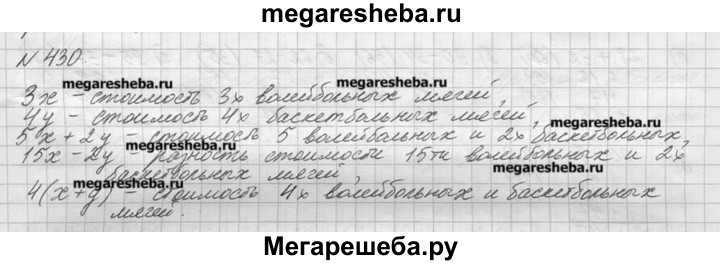 megaresheba.ru
N 430
megaresheba.ru megaresheba.ru
3x – стоимость 3х волейбольных мячей,
4y – стоимость 4х баскетбольных мячей,
5x + 2y – стоимость 5 волейбольных и 2х баскетбольных,
15x – 2y – разность стоимости 15ти волейбольных и 2х
баскетбольных мячей,
megaresheba.ru
megaresheba.ru
4(x+y) – стоимость 4х волейбольных и баскетбольных
мячей.
Мегарешеба.ру